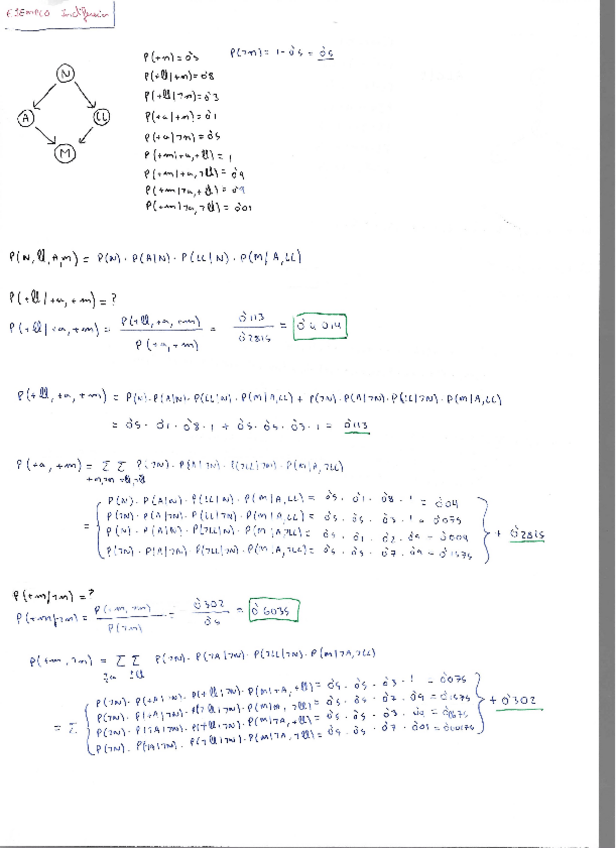 EJEMPLO
N
A LL
M
P(+n)=0'5 P(¬n)=1-0'5=0'5
P(+ll|+n)=0'8
P(+ll|¬n)=0'3
P(+a|+n)=0'1
P(+a|¬n)=0'5
P(+m|+a,+ll)=1
P(+m|+a,¬ll)=0'9
P(+m|¬a,+ll)=0'9
P(+m|¬a,¬ll)=0'01
P(N,ll,A,m) = P(N)·P(A|N)·P(LL|N)·P(M|A,LL)
P(+ll|+a,+m)=?
P(+ll|+a,+m) = P(+ll,+a,+m) / P(+a,+m) = 0'113 / 0'2815 = 0'4014
P(+ll,+a,+m) = P(N)·P(A|N)·P(LL|N)·P(M|A,LL) + P(¬N)·P(A|¬N)·P(LL|¬N)·P(M|A,LL)
= 0'5·0'1·0'8·1 + 0'5·0'5·0'3·1 = 0'113
P(+a,+m) = Σ Σ P(¬N)·P(A|¬N)·P(¬LL|¬N)·P(M|A,LL)
P(N)·P(A|N)·P(LL|N)·P(M|A,LL) = 0'5·0'1·0'8·1 = 0'04
P(¬N)·P(A|¬N)·P(LL|¬N)·P(M|A,LL) = 0'5·0'5·0'3·1 = 0'075
= P(N)·P(A|N)·P(¬LL|N)·P(M|A,¬LL) = 0'5·0'1·0'2·0'9 = 0'009 + 0'2815
P(¬N)·P(A|¬N)·P(¬LL|¬N)·P(M|A,¬LL) = 0'5·0'5·0'7·0'9 = 0'1575
P(+m|¬n)=?
P(+m|¬n) = P(+m,¬n) / P(¬n) = 0'302 / 0'5 = 0'6035
P(+m,¬n) = Σ Σ P(¬N)·P(¬A|¬N)·P(¬LL|¬N)·P(M|¬A,¬LL)
P(¬N)·P(+A|¬N)·P(+ll|¬N)·P(M|+A,+ll) = 0'5·0'5·0'3·1 = 0'075
= Σ P(¬N)·P(+A|¬N)·P(¬ll|¬N)·P(M|A,¬ll) = 0'5·0'5·0'7·0'9 = 0'1575 + 0'302
P(¬N)·P(¬A|¬N)·P(+ll|¬N)·P(M|¬A,+ll) = 0'5·0'5·0'3·0'9 = 0'0675
P(¬N)·P(¬A|¬N)·P(¬ll|¬N)·P(M|¬A,¬ll) = 0'5·0'5·0'7·0'01 = 0'00175